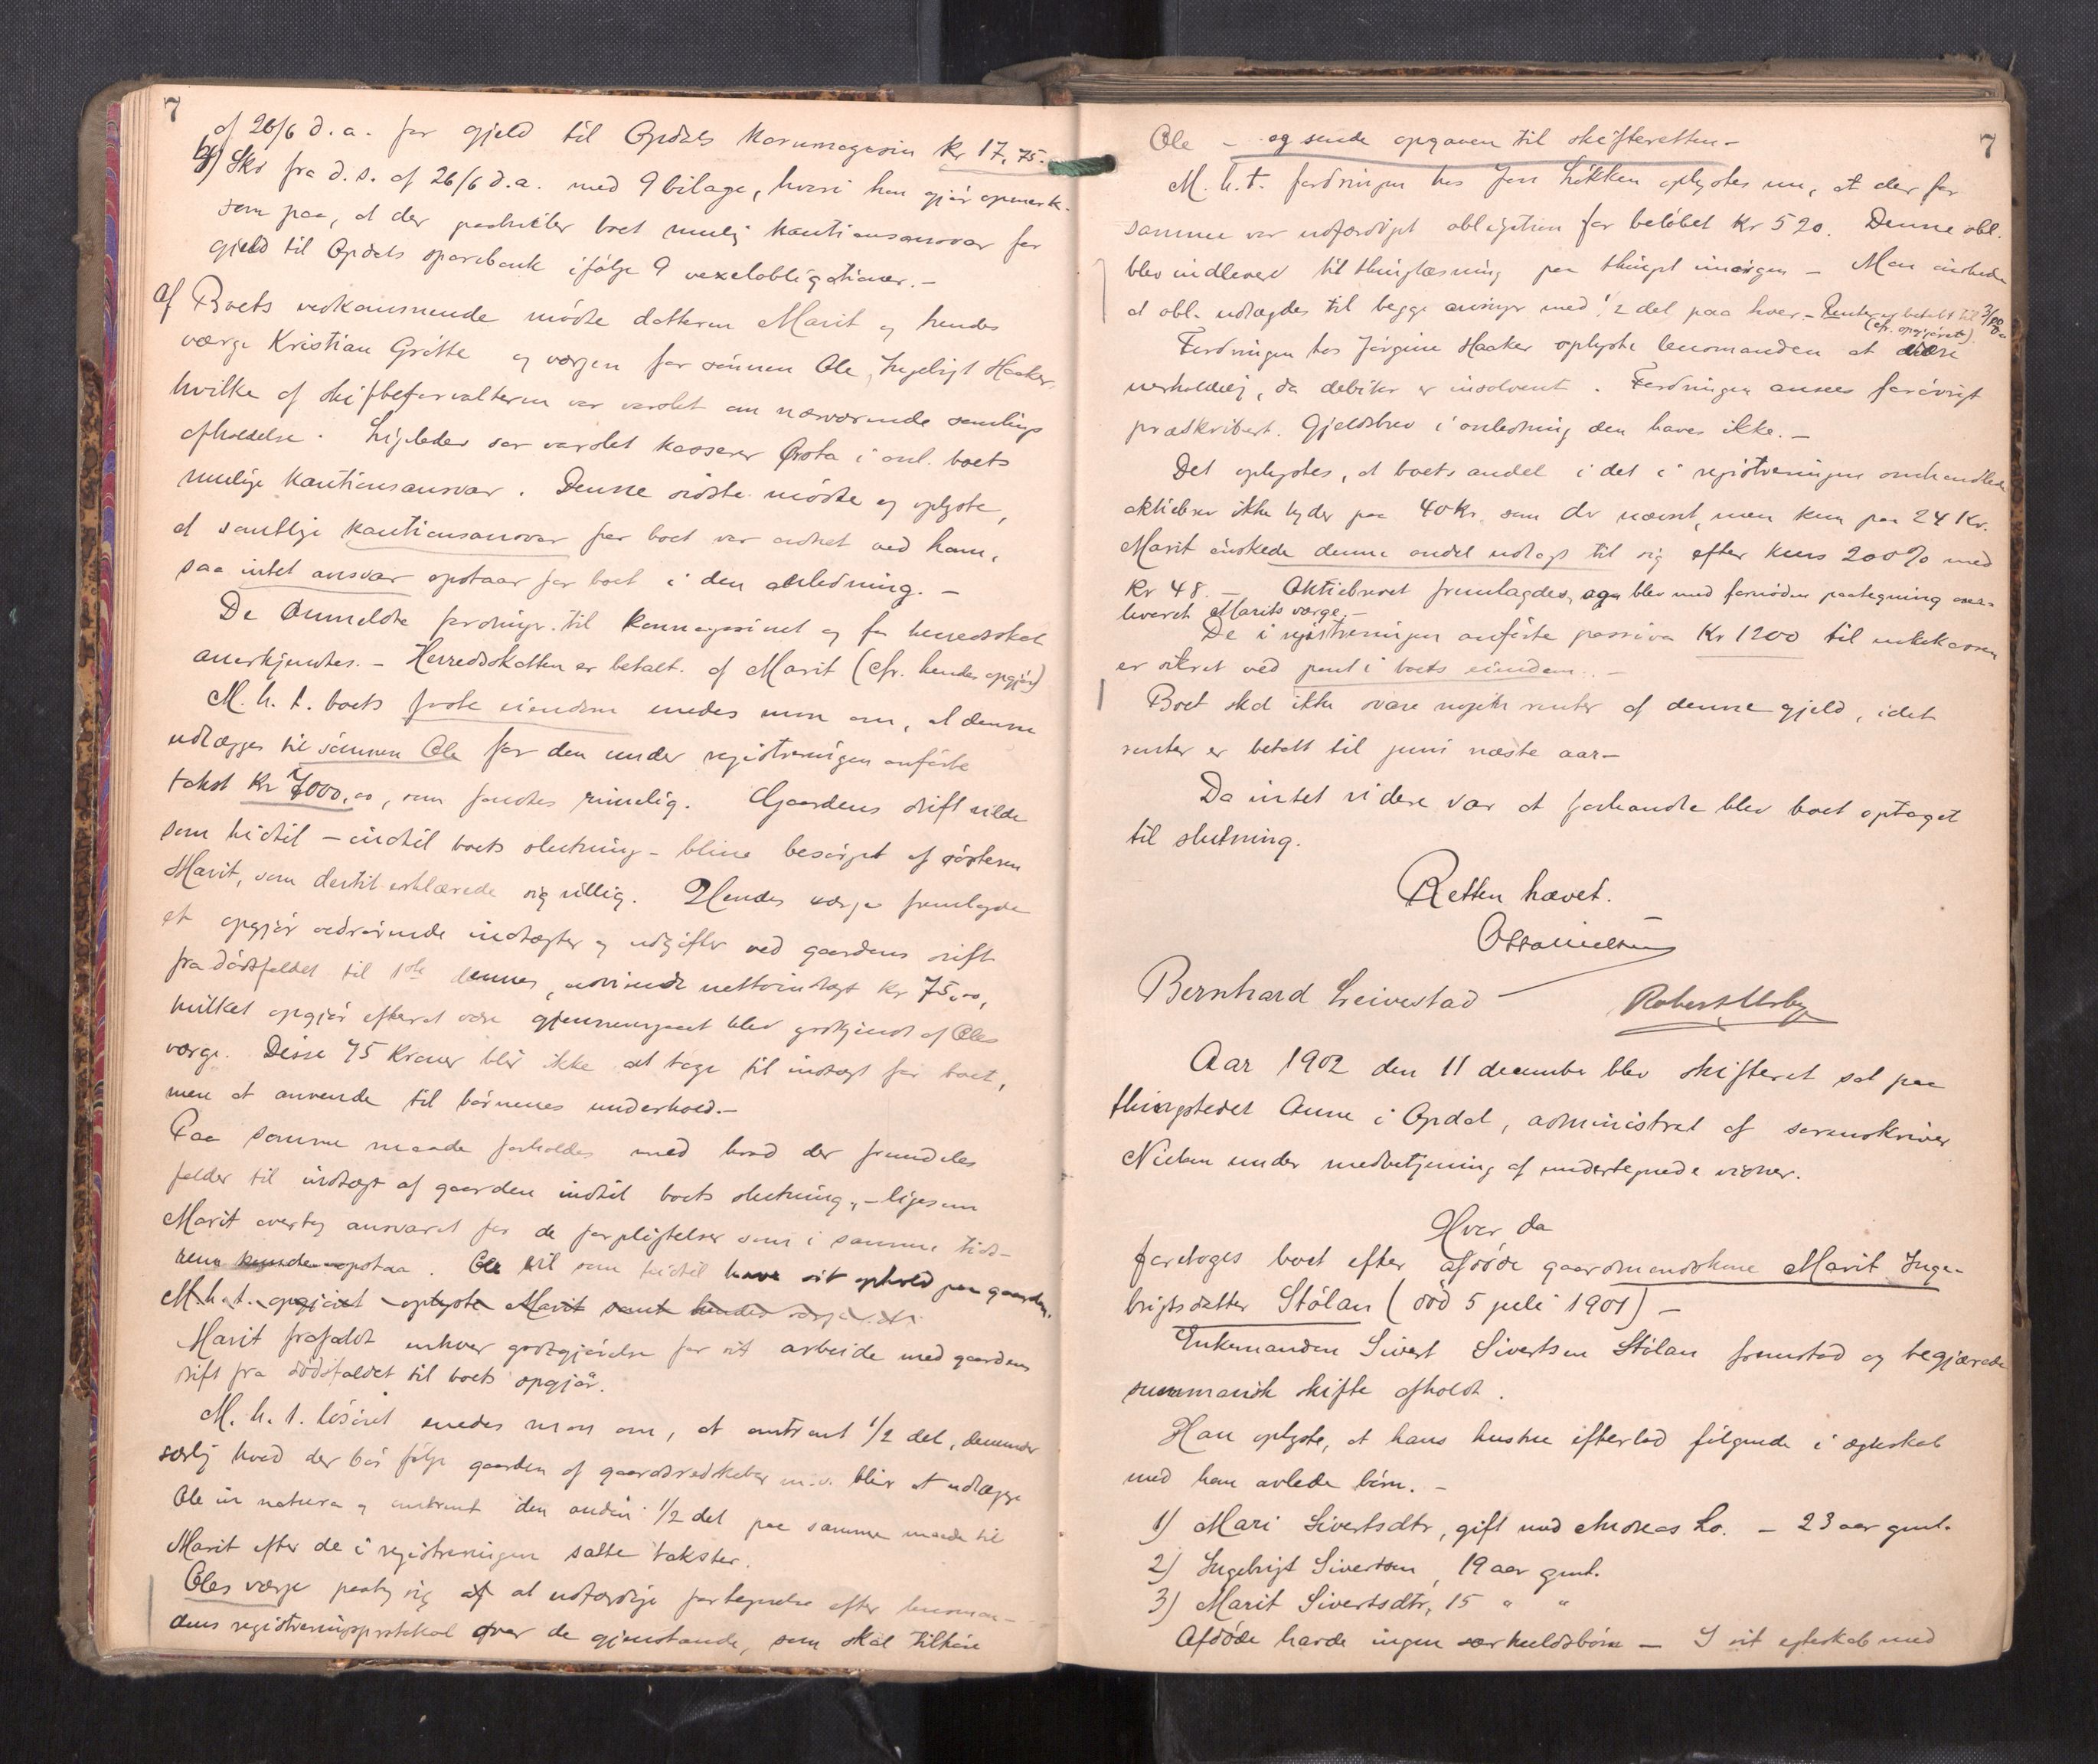 7
af 26/6 d.a. for gjeld til Opdals kornmagasin Kr 17,75.
g) Skr fra d.s. af 26/6 d.a. med 9 bilage, hvori han gjør opmerk-
som paa, at der paahviler boet mulig kautionsansvar for
gjeld til Opdals sparebank ifølge 9 vexelobligationer. –
Af Boets vedkommende mødte datteren Marit og hendes
værge Kristian Gritte og værgen for sønnen Ole, Ingebrigt Haaker,
hvilke af skifteforvalteren var varslet om nærværende samlings
afholdelse. Ligeledes var varslet kasserer Grøta i anl. boets
mulige kautionsansvar. Denne sidste mødte og oplyste,
at samtlige kautionsansvar for boet var ordnet ved ham,
saa intet ansvar opstaar for boet i den anledning. –
De anmeldte fordringr. til kornmagasinet og for herredsskat
anerkjendtes. – Herredsskatten er betalt af Marit (cfr. hendes opgjør)
M.h.t. boets faste eiendom enedes man om, at denne
udlægges til sønnen Ole for den under registreringen anførte
takst Kr 7000,00, som fandtes rimelig. Gaardens drift vilde
som hidtil – indtil boets slutning – blive besørget af søsteren
Marit, som dertil erklærede sig villig. Hendes værge fremlagde
et opgjør vedrørende indtægter og udgifter ved gaardens drift
fra dødsfaldet til dennes, udvisende nettoindtægt Kr 75,00,
hvilket opgjør efterat være gjennemgaaet blev godkjendt af Oles
værge. Disse 75 Kroner blir ikke at tage til indtægt for boet,
men at anvende til børnenes underhold. –
Paa samme maade forholdes med hvad der fremdeles
falder til indtægt af gaarden indtil boets slutning, – ligesom
Marit overtog ansvaret for de forpligtelser som i samme tids-
rum kunde opstaa. Ole vil som hidtil have sit ophold paa gaarden.
M.h.t. opgjøret oplyste Marit samt hendes værge, at
Marit frafaldt enhver godtgjørelse for sit arbeide med gaardens
drift fra dødsfaldet til boets opgjør.
M.h.t. løsøret enedes man om, at omtrent 1/2 del, derunder
særlig hvad der bør følge gaarden af gaardsredskaber m.v. blir at udlægge
Ole in natura og omtrent den anden 1/2 del paa samme maade til
Marit efter de i registreringen satte takster.
Oles værge paatog sig at udfærdige fortegnelse efter lensman-
dens registreringsprotokol over de gjenstande, som skal tilhøre
7
Ole – og sende opgaven til skifteretten –
M.h.t. fordringen hos Jon Løkken oplystes nu, at der for
samme var udfærdiget obligation for beløbet Kr 520. Denne obl.
blev indleveret til thinglæsning paa thinget imorgen – Man ønskede
at obl. udlægdes til begge arvinger med 1/2 del paa hver – Renter er betalt til
(cfr. opgjøret)
Fordringen hos Jørgine Haaker oplyste lensmanden at være
uerholdelig, da debitor er insolvent. Fordringen ansees forøvrigt
præskribert. Gjeldsbrev i anledning den haves ikke. –
Det oplystes, at boets andel i det i registreringen omhandlede
aktiebrev ikke lyder paa 40 kr. som der nævnt, men kun paa 24 Kr.
Marit ønskede denne andel udlagt til sig efter kurs 200% med
Kr 48. – Aktiebrevet fremlagdes, og blev med fornøden paategning over-
leveret Marits værge. –
De i registreringen anførte passiva Kr 1200 til enkekassen
er sikret ved pant i boets eiendom. –
Boet skal ikke svare nogen renter af denne gjeld, idet
renter er betalt til juni næste aar –
Da intet videre var at forhandle blev boet optaget
til slutning.
Retten hævet.
Otto Nielsen
Bernhard Leivestad
Robert Usby
Aar 1902 den 11 december blev skifteret sat paa
thingstedet Aune i Opdal, administret af sorenskriver
Nielsen under medbetjening af undertegnede vidner.
Hvor da
foretoges boet efter afdøde gaardmandskone Marit Inge-
brigtsdatter Stølan (død 5 juli 1901) –
Enkemanden Sivert Sivertsen Stølan fremstod og begjærede
summarisk skifte afholdt.
Han oplyste, at hans hustru efterlod følgende i ægteskab
med ham avlede børn. –
1) Mari Sivertsdtr, gift med Andreas Lo. – 23 aar gml.
2) Ingebrigt Sivertsen, 19 aar gml.
3) Marit Sivertsdtr, 15 " "
Afdøde havde ingen særkuldsbørn – I sit egteskab med